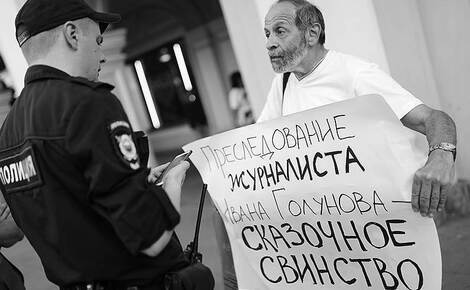 ПОЛИЦИЯ
ПРЕСЛЕДОВАНИЕ
ЖУРНАЛИСТА
ИВАНА ГОЛУНОВА –
СКАЗОЧНОЕ
СВИНСТВО